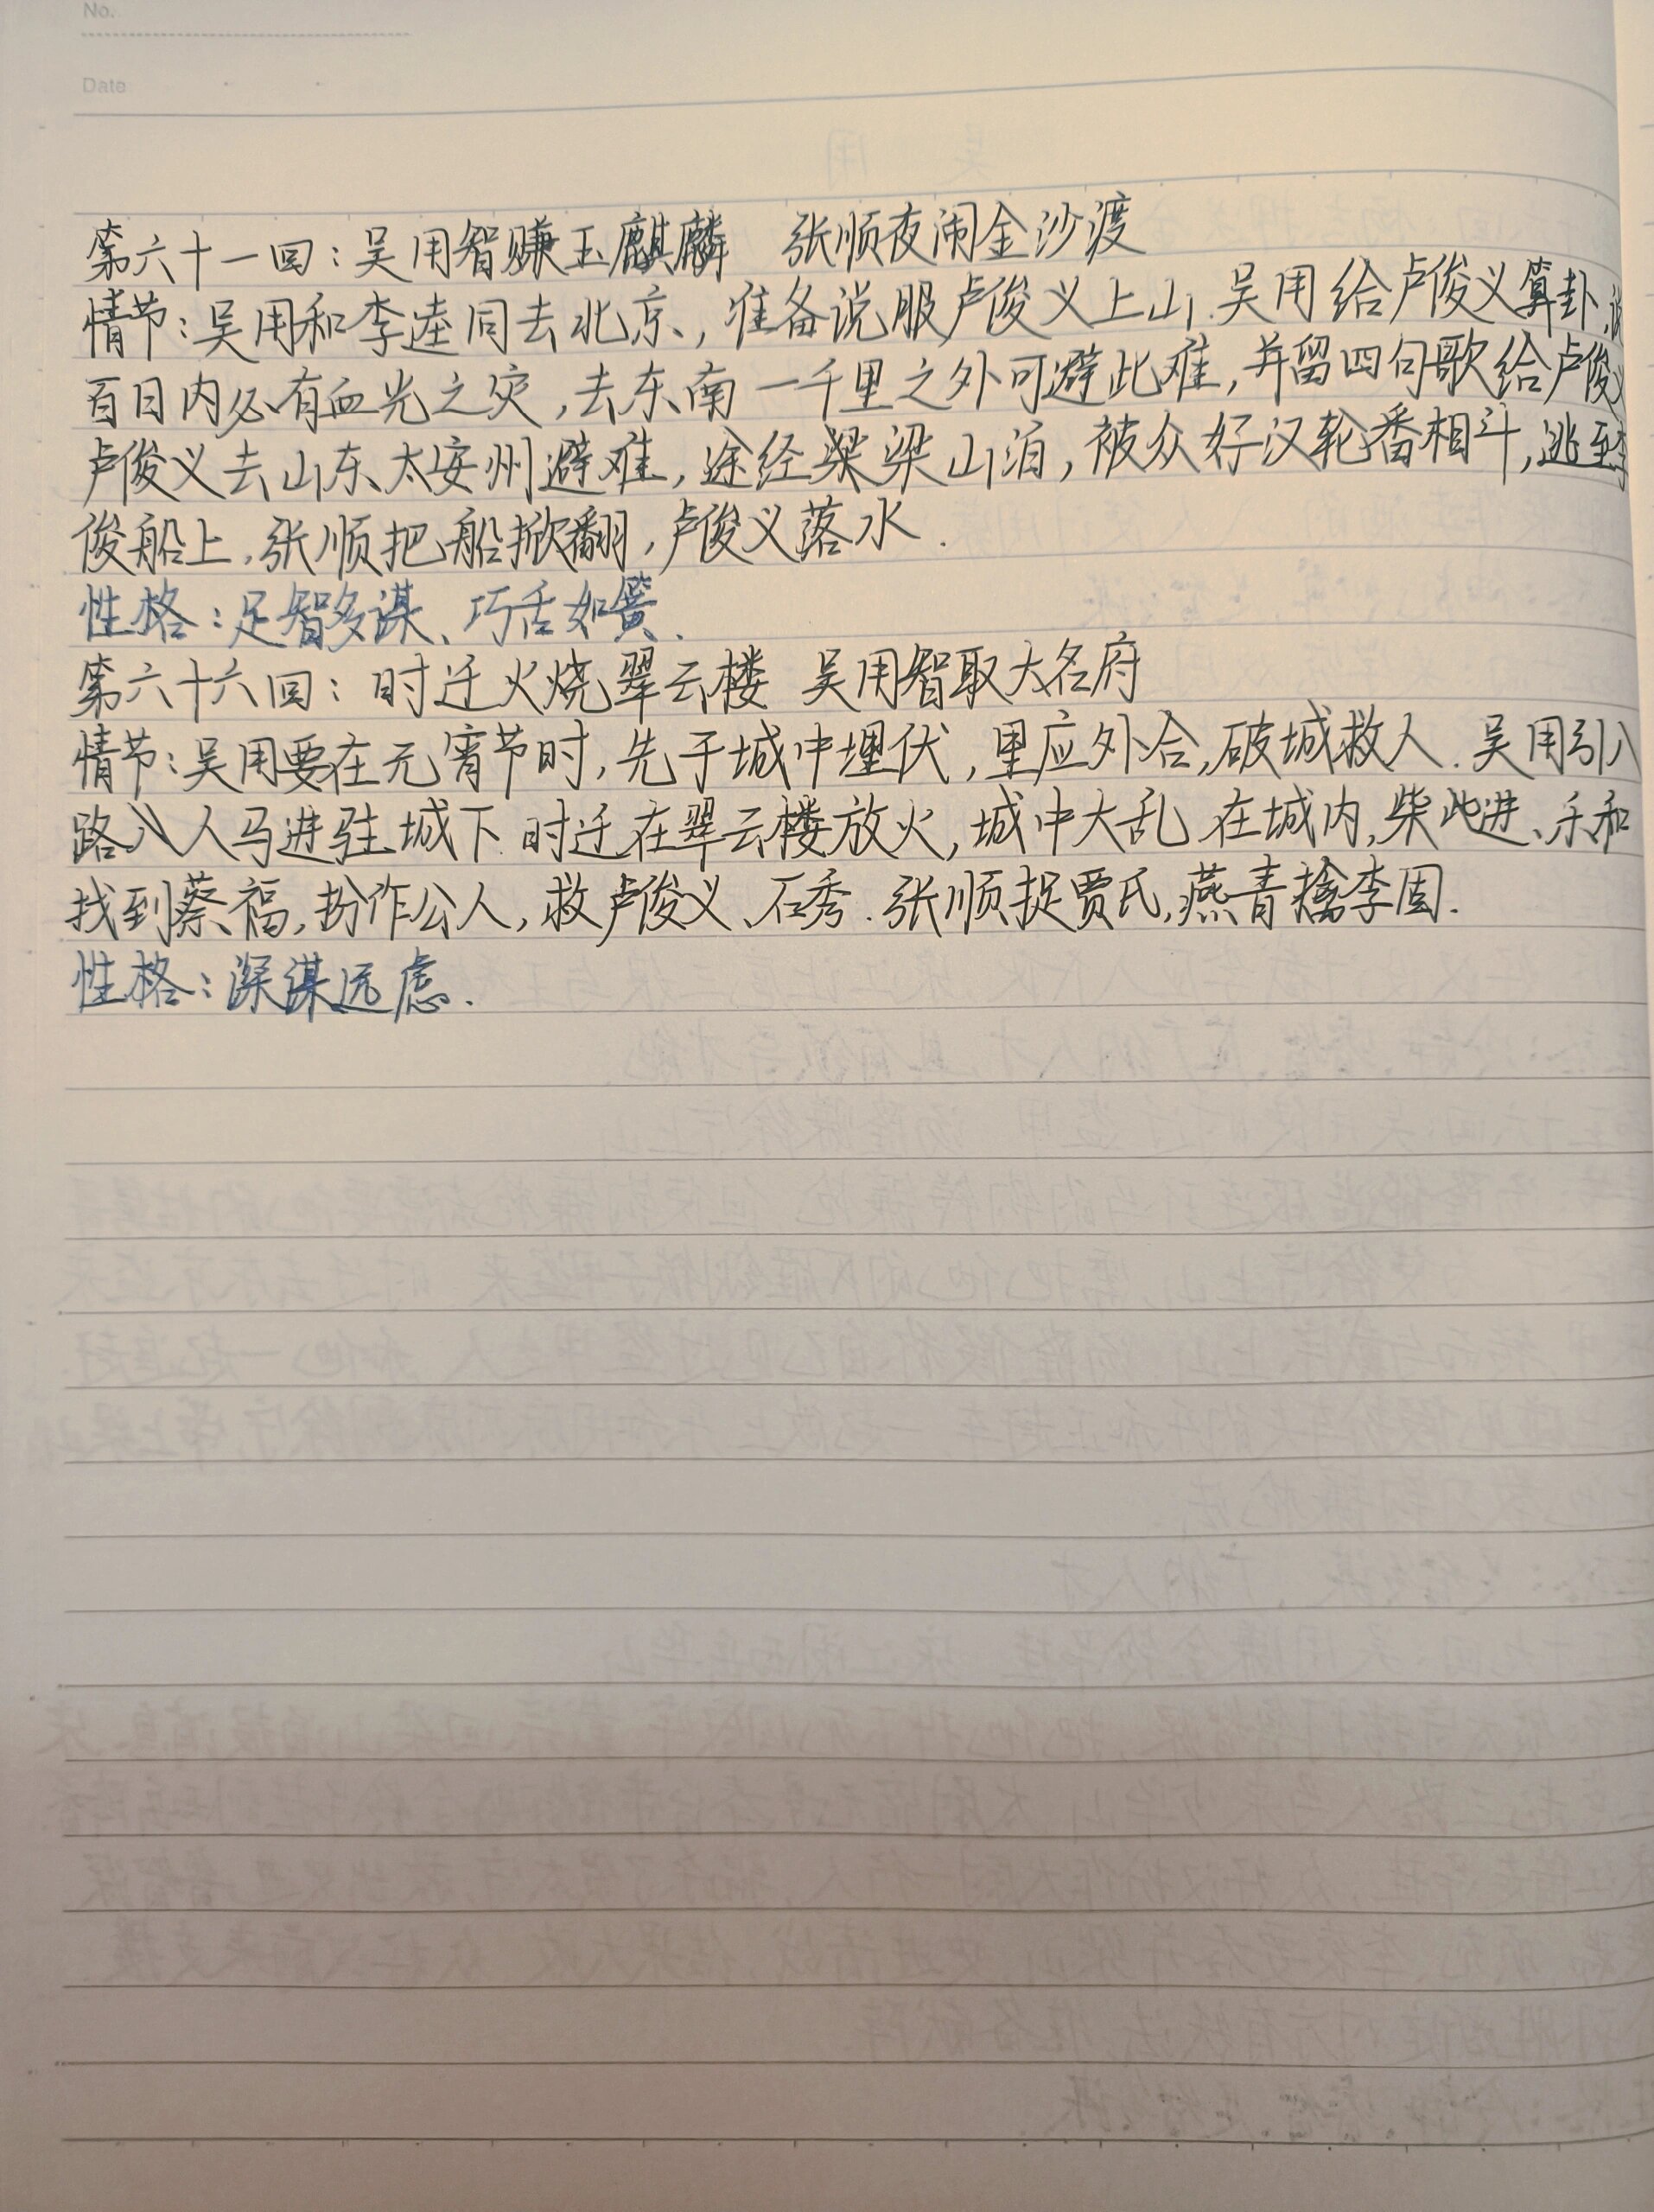 No.
Date
第六十一回：吴用智赚玉麒麟 张顺夜闹金沙渡
情节：吴用和李逵同去北京，准备说服卢俊义上山.吴用给卢俊义算卦,说
百日内必有血光之灾,去东南一千里之外可避此难,并留四句歌给卢俊义
卢俊义去山东太安州避难,途经梁山泊,被众好汉轮番相斗,逃至李
俊船上,张顺把船掀翻,卢俊义落水.
性格：足智多谋、巧舌如簧.
第六十六回：时迁火烧翠云楼 吴用智取大名府
情节：吴用要在元宵节时,先于城中埋伏,里应外合,破城救人.吴用引八
路人马进驻城下.时迁在翠云楼放火,城中大乱.在城内,柴进、乐和
找到蔡福,扮作公人,救卢俊义、石秀.张顺捉贾氏,燕青擒李固.
性格：深谋远虑.